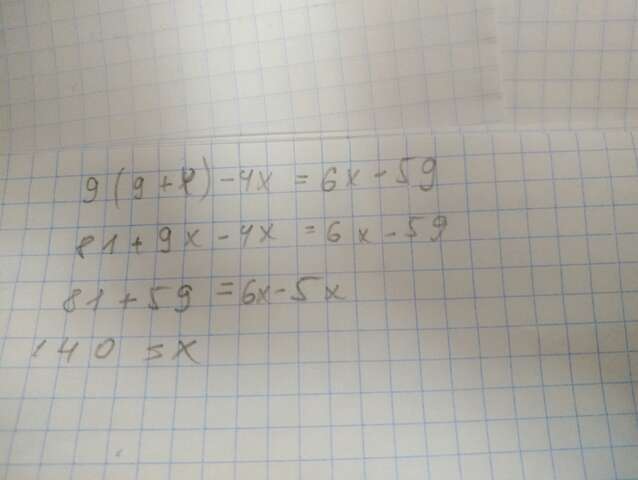 9(9+x)-4x=6x-59
81+9x-4x=6x-59
81+59=6x-5x
140=x